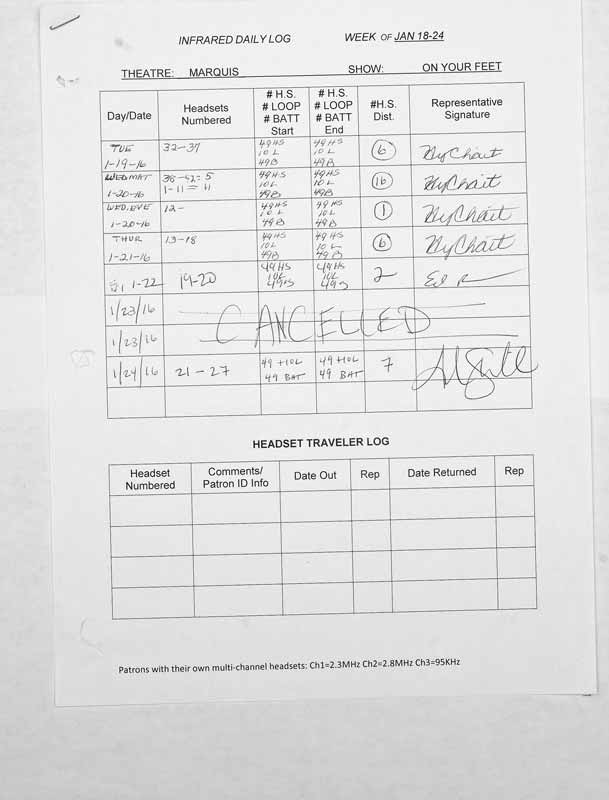 INFRARED DAILY LOG WEEK OF JAN 18-24
THEATRE: MARQUIS SHOW: ON YOUR FEET
Day/Date Headsets Numbered # H.S. # LOOP # BATT Start # H.S. # LOOP # BATT End #H.S. Dist. Representative Signature
TUE 1-19-16 32-37 49HS 10 L 49B 49HS 10 L 49B 6
WED MAT 1-20-16 38-42=5 1-11=11 49HS 10L 49B 49HS 10L 49B 16
WED.EVE 1-20-16 12- 49HS 10L 49B 49HS 10L 49B 1
THUR 1-21-16 13-18 49HS 10L 49B 49HS 10L 49B 6
1-22 19-20 49HS 10L 49HS 10L 2
1/23/16
CANCELLED
1/23/16
1/24/16 21-27 49 +10L 49 BAT 49 +10L 49 BAT 7
HEADSET TRAVELER LOG
Headset Numbered Comments/ Patron ID Info Date Out Rep Date Returned Rep
Patrons with their own multi-channel headsets: Ch1=2.3MHz Ch2=2.8MHz Ch3=95KHz